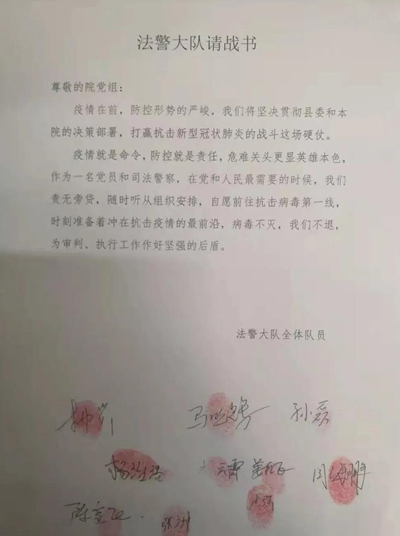 法警大队请战书
尊敬的院党组：
疫情在前，防控形势的严峻、我们将坚决贯彻县委和本
院的决策部署，打赢抗击新型冠状肺炎的战斗这场硬仗。
疫情就是命令，防控就是责任，危难关头更显英雄本色，
作为一名党员和司法警察，在党和人民最需要的时候，我们
责无旁贷，随时听从组织安排，自愿前往抗击病毒第一线，
时刻准备着冲在抗击疫情的最前沿，病毒不灭，我们不退，
为审判、执行工作作好坚强的后盾。
法警大队全体队员
孙磊